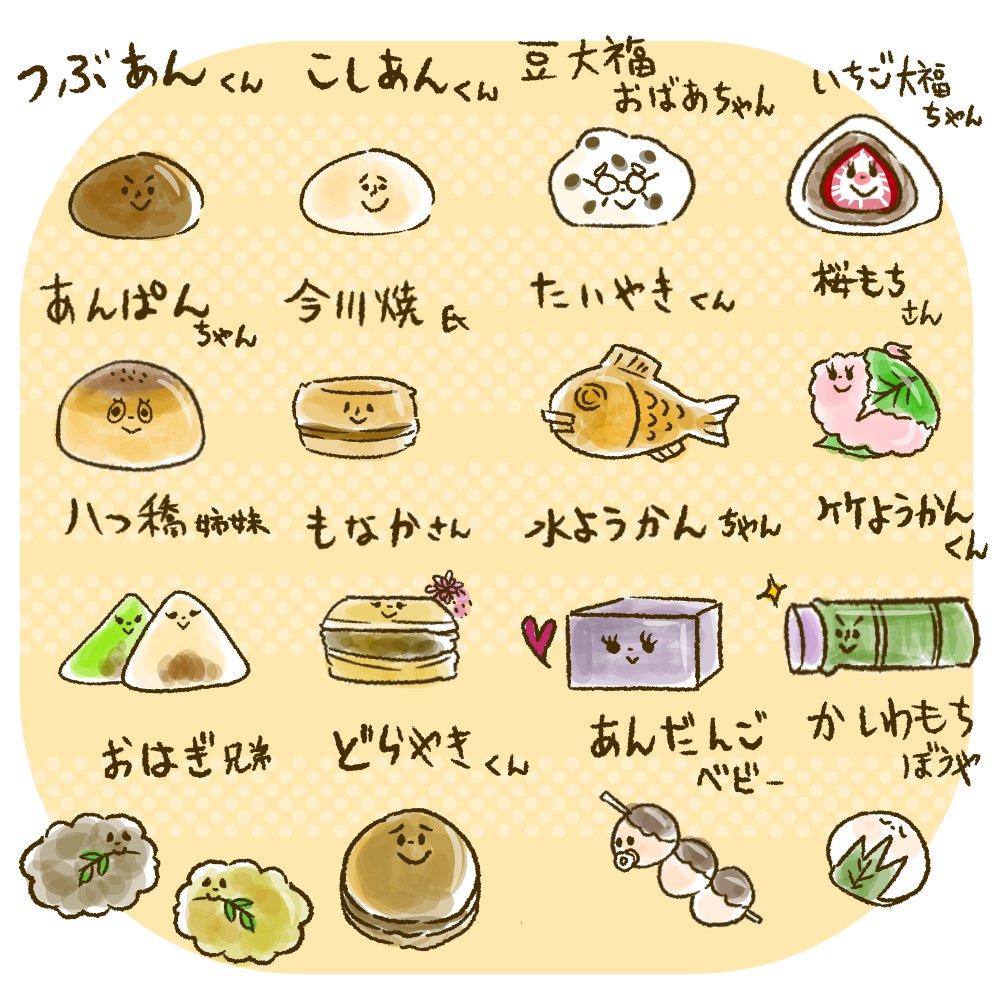 つぶあんくん
こしあんくん
豆大福
おばあちゃん
いちご大福
ちゃん
あんぱん
ちゃん
今川焼氏
たいやきくん
桜もち
さん
八つ橋姉妹
もなかさん
水ようかんちゃん
竹ようかん
くん
おはぎ兄弟
どらやきくん
あんだんご
ベビー
かしわもち
ぼうや